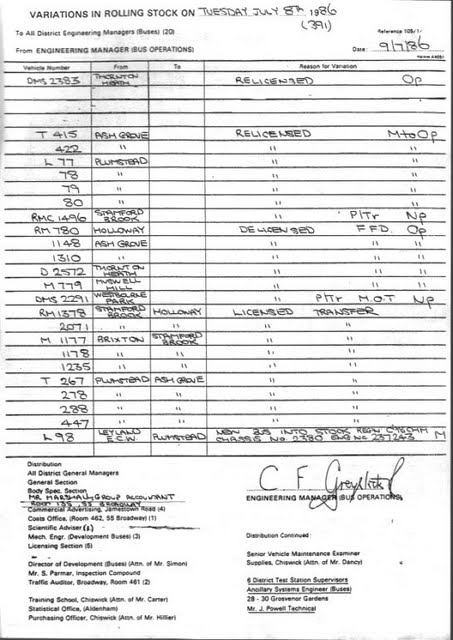 VARIATIONS IN ROLLING STOCK ON TUESDAY JULY 8th 1986
(391)
To All District Engineering Managers (Buses) (20)
Reference 105/1/
From ENGINEERING MANAGER (BUS OPERATIONS)
Date: 9/7/86
Vehicle Number From To Reason for Variation
DMS 2383 THORNTON HEATH RELICENSED Op
T 415 ASH GROVE RELICENSED M to Op
422 " " "
L 77 PLUMSTEAD " "
78 " " "
79 " " "
80 " " "
RMC 1496 STAMFORD BROOK " PlTr Np
RM 780 HOLLOWAY DELICENSED F.F.D. Op
1148 ASH GROVE " " "
1310 " " " "
D 2572 THORNTON HEATH " " "
M 779 MUSWELL HILL " " "
DMS 2291 WESTBOURNE PARK " PlTr M.O.T Np
RM 1378 STAMFORD BROOK HOLLOWAY LICENSED TRANSFER
2071 " " " "
M 1177 BRIXTON STAMFORD BROOK " "
1178 " " " "
1235 " " " "
T 267 PLUMSTEAD ASH GROVE " "
278 " " " "
288 " " " "
447 " " " "
L 98 LEYLAND E.C.W. PLUMSTEAD NEW BUS INTO STOCK REGN C98CHM M
CHASSIS No. 2380 ENG No 237243
Distribution
All District General Managers
General Section
Body Spec. Section
MR MARSHALL, GROUP ACCOUNTANT
ROOM 135, 55 BROADWAY
Commercial Advertising, Jamestown Road (4)
Costs Office, (Room 462, 55 Broadway) (1)
Scientific Adviser
Mech. Engr. (Development Buses) (3)
Licensing Section (5)
Director of Development (Buses) (Attn. of Mr. Simon)
Mr. S. Parmar, Inspection Compound
Traffic Auditor, Broadway, Room 461 (2)
Training School, Chiswick (Attn. of Mr. Carter)
Statistical Office, (Aldenham)
Purchasing Officer, Chiswick (Attn. of Mr. Hillier)
ENGINEERING MANAGER (BUS OPERATIONS)
Distribution Continued:
Senior Vehicle Maintenance Examiner
Supplies, Chiswick (Attn. of Mr. Dancy)
6 District Test Station Supervisors
Ancillary Systems Engineer (Buses)
28 - 30 Grosvenor Gardens
Mr. J. Powell Technical